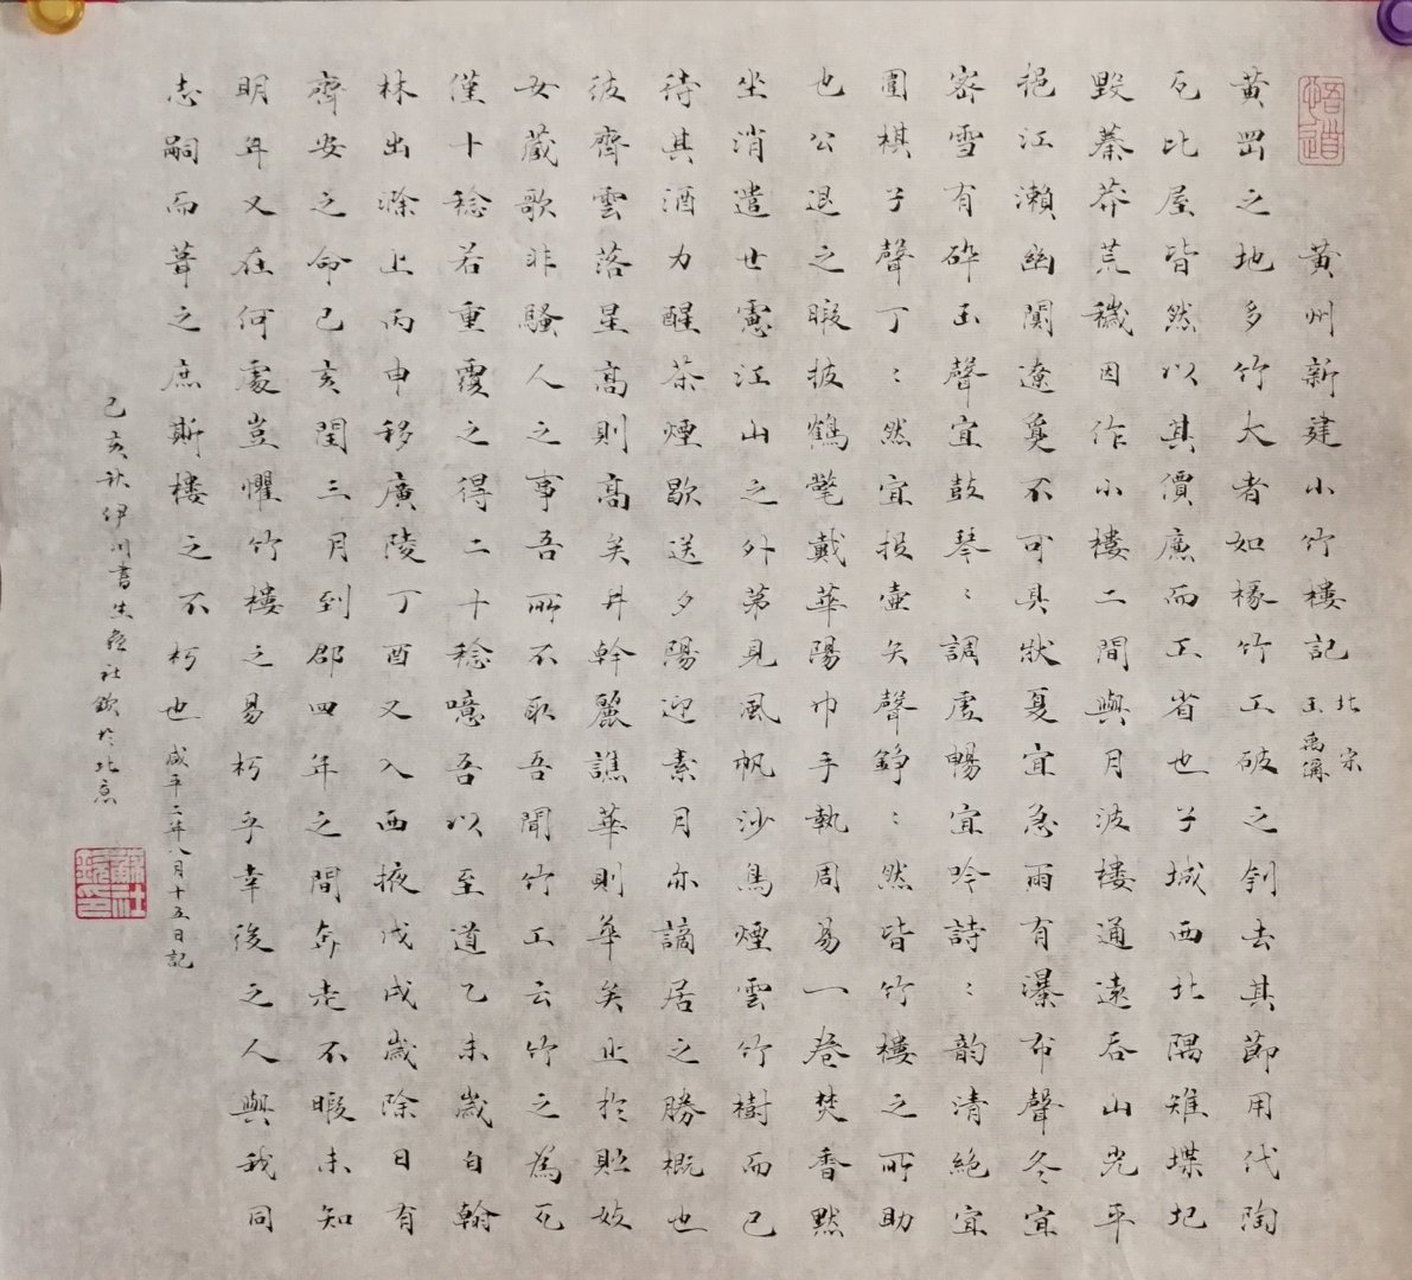 悟道
黄州新建小竹樓記 北宋 王禹偁
黄岡之地多竹大者如椽竹工破之刳去其節用代陶
瓦比屋皆然以其價廉而工省也子城西北隅雉堞圮
毀蓁莽荒穢因作小樓二間與月波樓通遠吞山光平
挹江瀨幽闃遼夐不可具狀夏宜急雨有瀑布聲冬宜
密雪有碎玉聲宜鼓琴〻調虛暢宜吟詩〻韵清絶宜
圍棋子聲丁〻然宜投壺矢聲錚〻然皆竹樓之所助
也公退之暇披鶴氅戴華陽巾手執周易一卷焚香默
坐消遣世慮江山之外第見風帆沙鳥煙雲竹樹而已
待其酒力醒茶煙歇送夕陽迎素月亦謫居之勝概也
彼齊雲落星高則高矣井幹麗譙華則華矣止於貯妓
女蔵歌非騷人之事吾所不取吾聞竹工云竹之為瓦
僅十稔若重覆之得二十稔噫吾以至道乙未歲自翰
林出滁上丙申移廣陵丁酉又入西掖戊戌歲除日有
齊安之命己亥閏三月到郡四年之間奔走不暇未知
明年又在何處豈懼竹樓之易朽乎幸後之人與我同
志嗣而葺之庶斯樓之不朽也 咸平二年八月十五日記
己亥秋伊川書生蘇社欽於北京
蘇社欽印